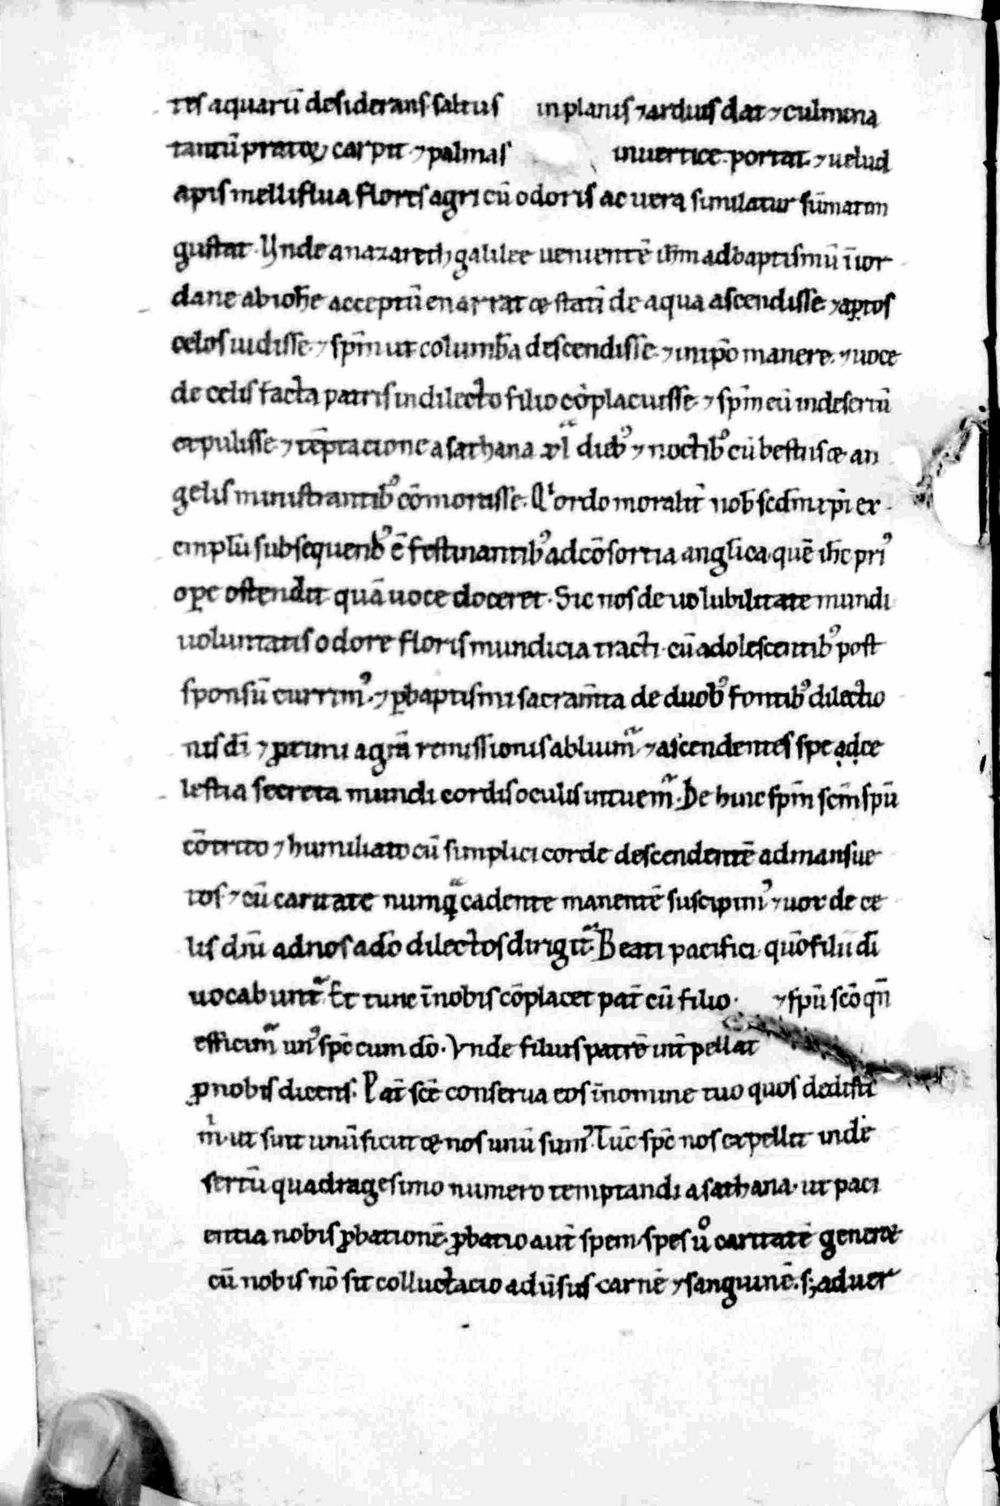 tes aquarū desiderans saltus in planis ⁊ arduis dat ⁊ culmina
tantū pratoꝝ carpit ⁊ palmas in uertice portat ⁊ uelud
apis melliflua flores agri cū odoris ac uera similatur sūmatim
gustat. Vnde a nazareth galilee uenientē ihm̄ ad baptismū ī ior
dane ab ioh̄e acceptū enarrat & statī de aqua ascendisse ⁊ aꝑtos
celos uidisse ⁊ sp̄m ut columb̄a descendisse ⁊ in ip̄o manere ⁊ uoce
de celis facta patris in dilecto filio cōplacuisse ⁊ sp̄m eū in desertū
expulisse ⁊ tēptacione a sathana xl dieb᾽ ⁊ noctib᾽ cū bestiis & an
gelis ministrantib᾽ cōmorasse. Qi ordo moralit̄ nob̄ sc̄dm xp̄i ex
emplū subsequend᾽ ē festinantib᾽ ad cōsortia angl̄ica quē ih̄c pri᾽
oꝑe ostendit quā uoce doceret. Sic nos de uolubilitate mundi
uoluntatis odore floris mundicia tracti cū adolescentib᾽ post
sponsū currim᾽ ⁊ ꝑ baptismi sacram̄ta de duob᾽ fontib᾽ dilectio
nis dī ⁊ ꝓximi agm̄ remissionis abluim̄ ⁊ ascendentes spe ad ce
lestia secreta mundi cordis oculis intuem̄. De hinc sp̄m sc̄m spū
cōtrito ⁊ humiliato cū simplici corde descendentē ad mansue
tos ⁊ cū caritate numq̄ cadente manentē suscipim᾽ ⁊ uox de ce
lis dn̄i ad nos a dō dilectos dirigit̄. Beati pacifici quō filii dī
uocabunt̄. Et tunc ī nobis cōplacet pat̄ cū filio ⁊ spū scō qn̄
efficim̄ un᾽ spc̄ cum dō. Vnde filius patrē int̄pellat
ꝓ nobis dicens. Pat̄ sc̄e conserua eos ī nomine tuo quos dedisti
m̄ ut sint unū sicut & nos unū sum᾽. Tūc spc̄ nos expellit in de
sertū quadragesimo numero temptandi a sathana ut paci
entia nobis ꝓbationē ꝓbatio aut̄ spem spes ūo caritatē generæ
cū nobis nō sit colluctacio aduīsus carnē ⁊ sanguinē. sꝫ aduer